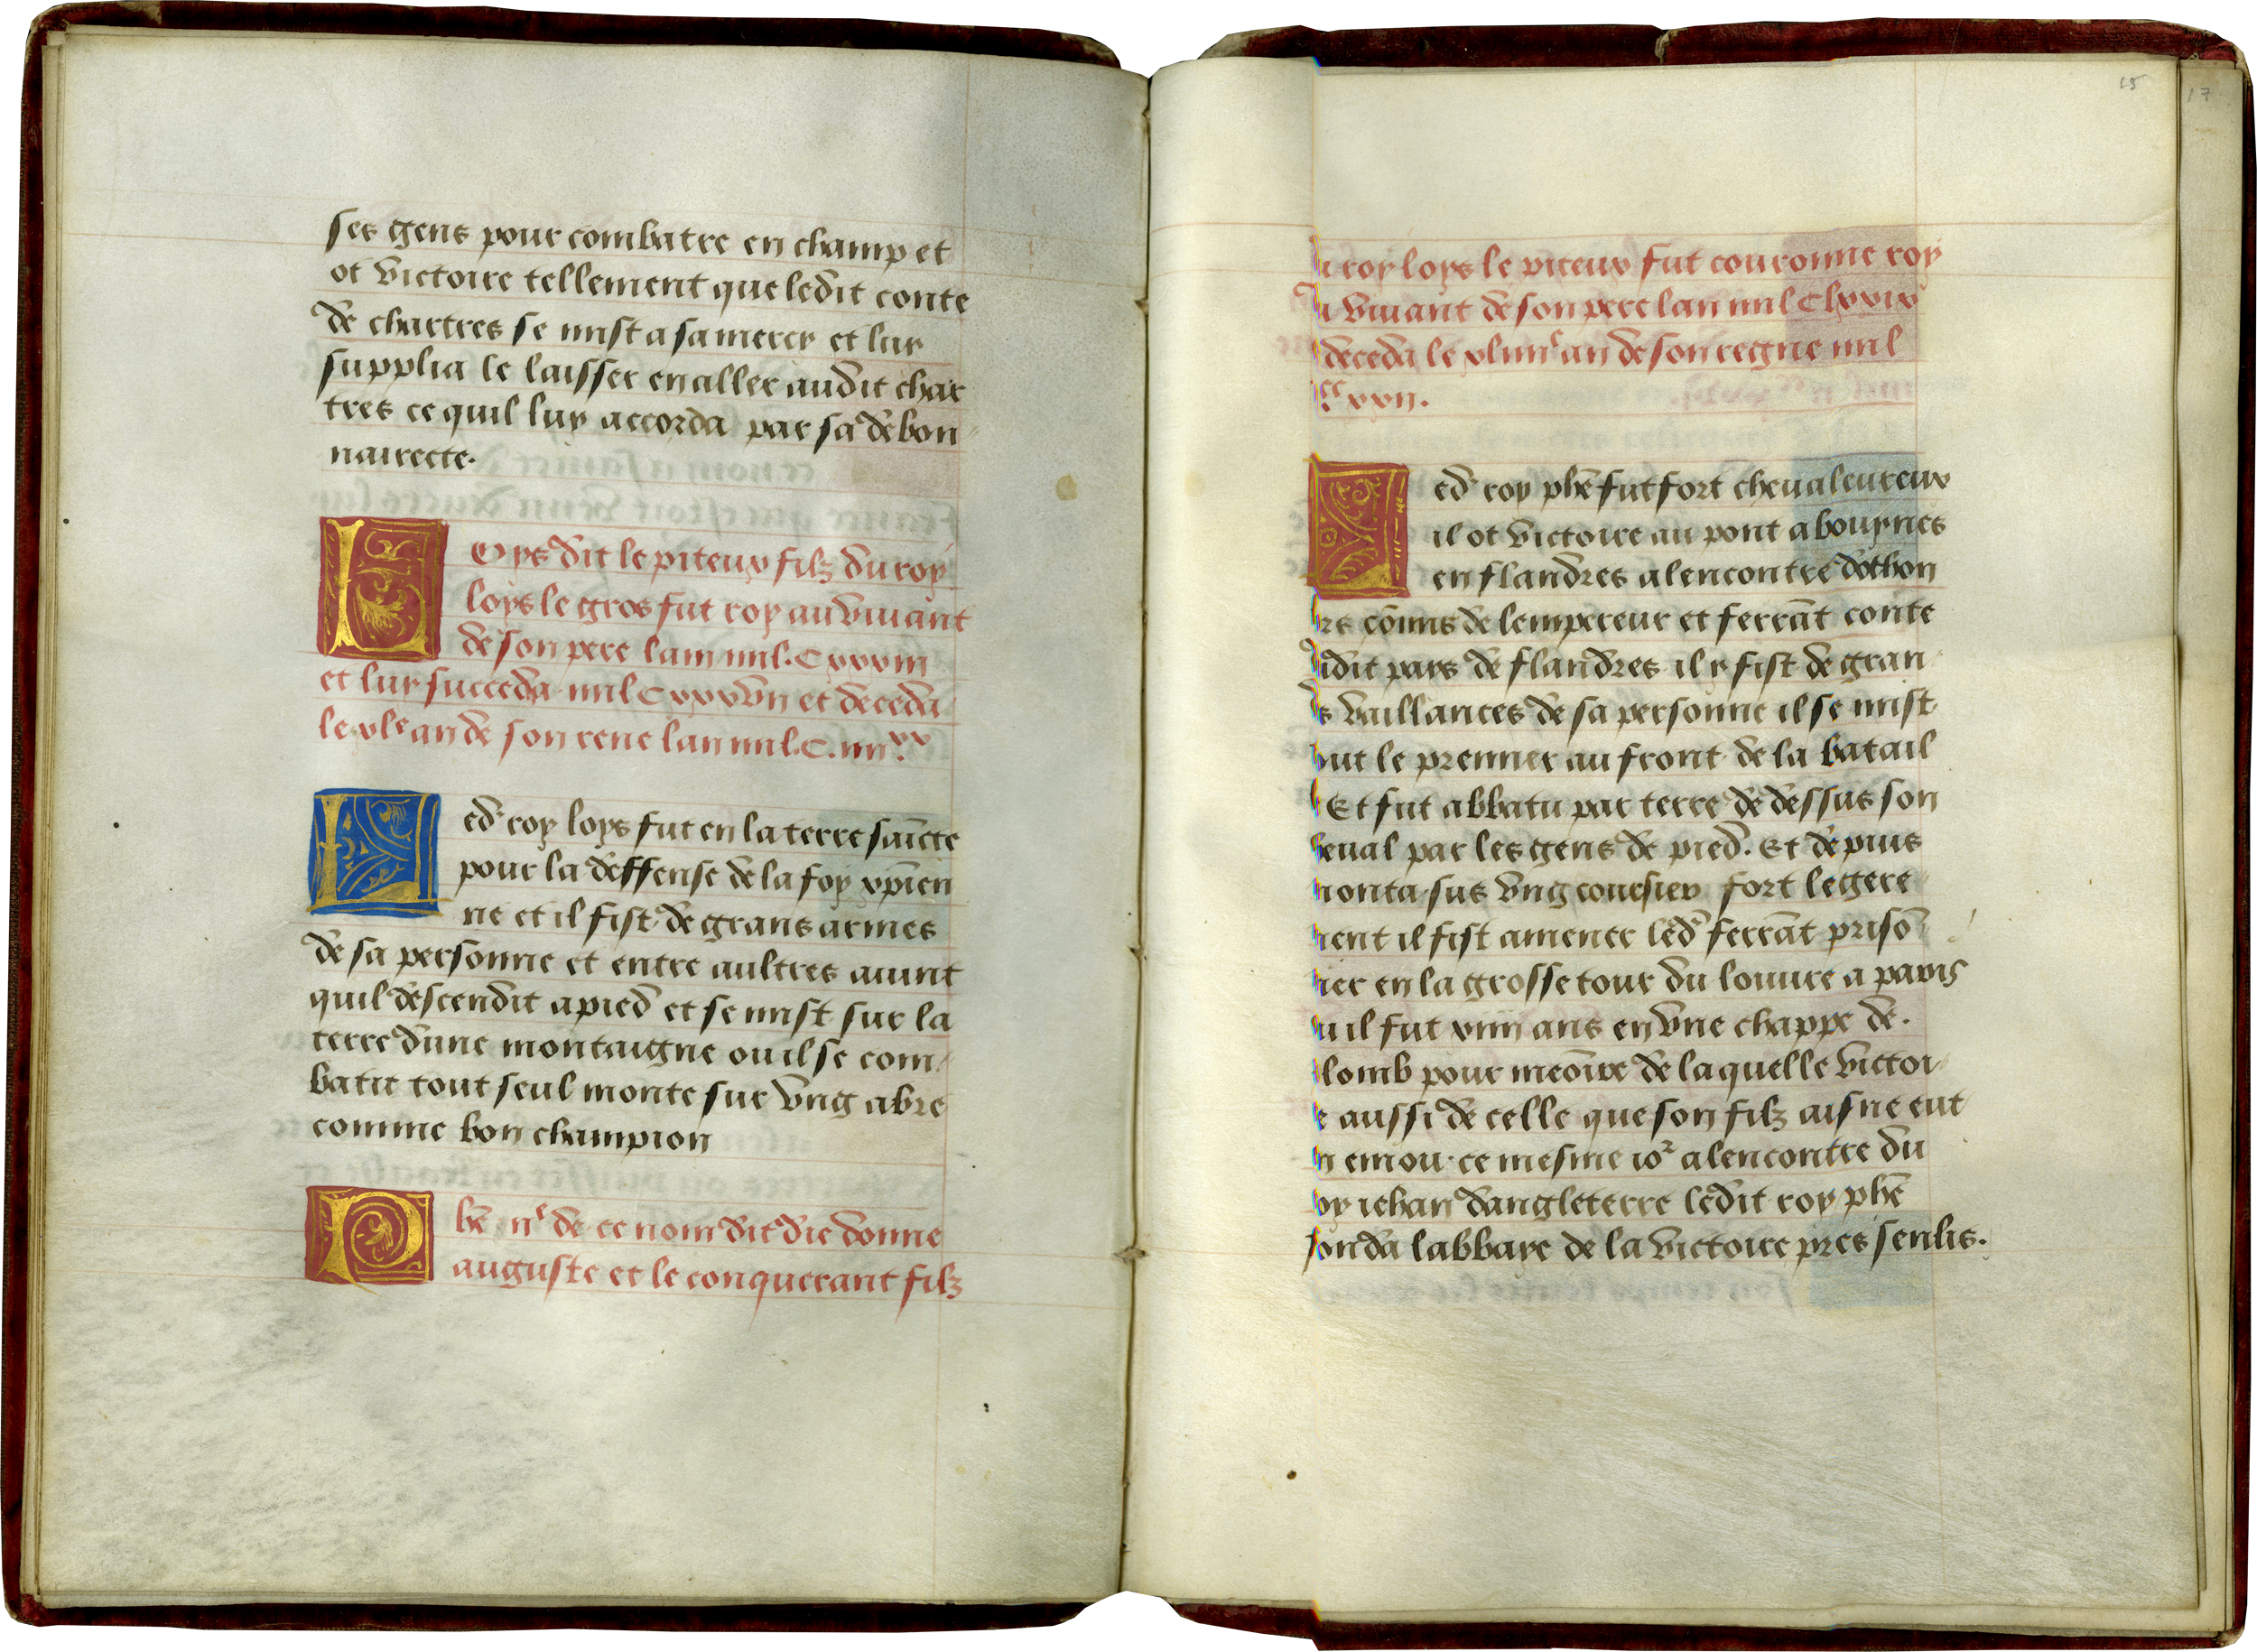 ses gens pour combatre en champ et
ot victoire tellement que ledit conte
de chartres se mist a sa mercy et luy
supplia le laisser en aller audit char
tres ce quil luy accorda par sa debon
nairecte.
Loys dit le piteux filz du roy
loys le gros fut roy au vivant
de son pere lam mil. C xxxiii
et luy succeda mil C xxxvii et deceda
le xle an de son rene lan mil. C. iiii xx
Led' roy loys fut en la terre saīcte
pour la deffense de la foy xpien
ne et il fist de grans armes
de sa personne et entre aultres avint
quil descendit a pied et se mist sur la
terre dune montaigne ou il se com
batit tout seul monte sur vng abre
comme bon champion
Phē iie de ce nom dit die donne
auguste et le conquerant filz
15
17
u roy loys le piteux fut couronne roy
u vivant de son pere lan mil C lxxix
deceda le xliiiie an de son regne mil
CC xxii.
Led' roy phē fut fort chevaleureux
il ot victoire au pont a bouynes
en flandres alencontre dothon
rs cōmis de lempereur et ferrāt conte
udit pays de flandres il y fist de gran
s vaillances de sa personne il se mist
out le premier au front de la batail
Et fut abbatu par terre de dessus son
heval par les gens de pied. Et depuis
monta sus vng coursier fort legere
ment il fist amener led' ferrāt prisō
ier en la grosse tour du louvre a paris
u il fut xiiii ans en vne chappe de.
lomb pour meōire de laquelle victoi
e aussi de celle que son filz aisne eut
n emou ce mesme ior alencontre du
oy iehan dangleterre ledit roy phē
fonda labbaye de la victoire pres senlis.